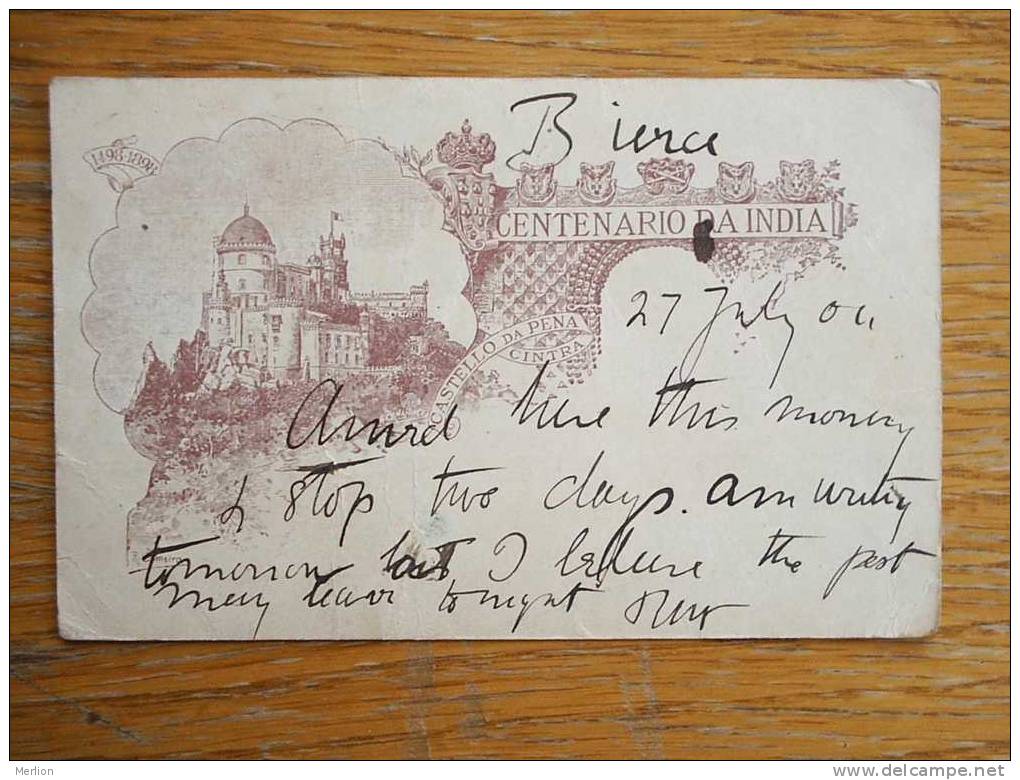 Bierce
1498-1898
CENTENARIO DA INDIA
CASTELLO DA PENA
CINTRA
27 July 0
here this
& stop two days. am writing
tomorrow but I believe the post
may leave tonight
Merlion
delcampe.net